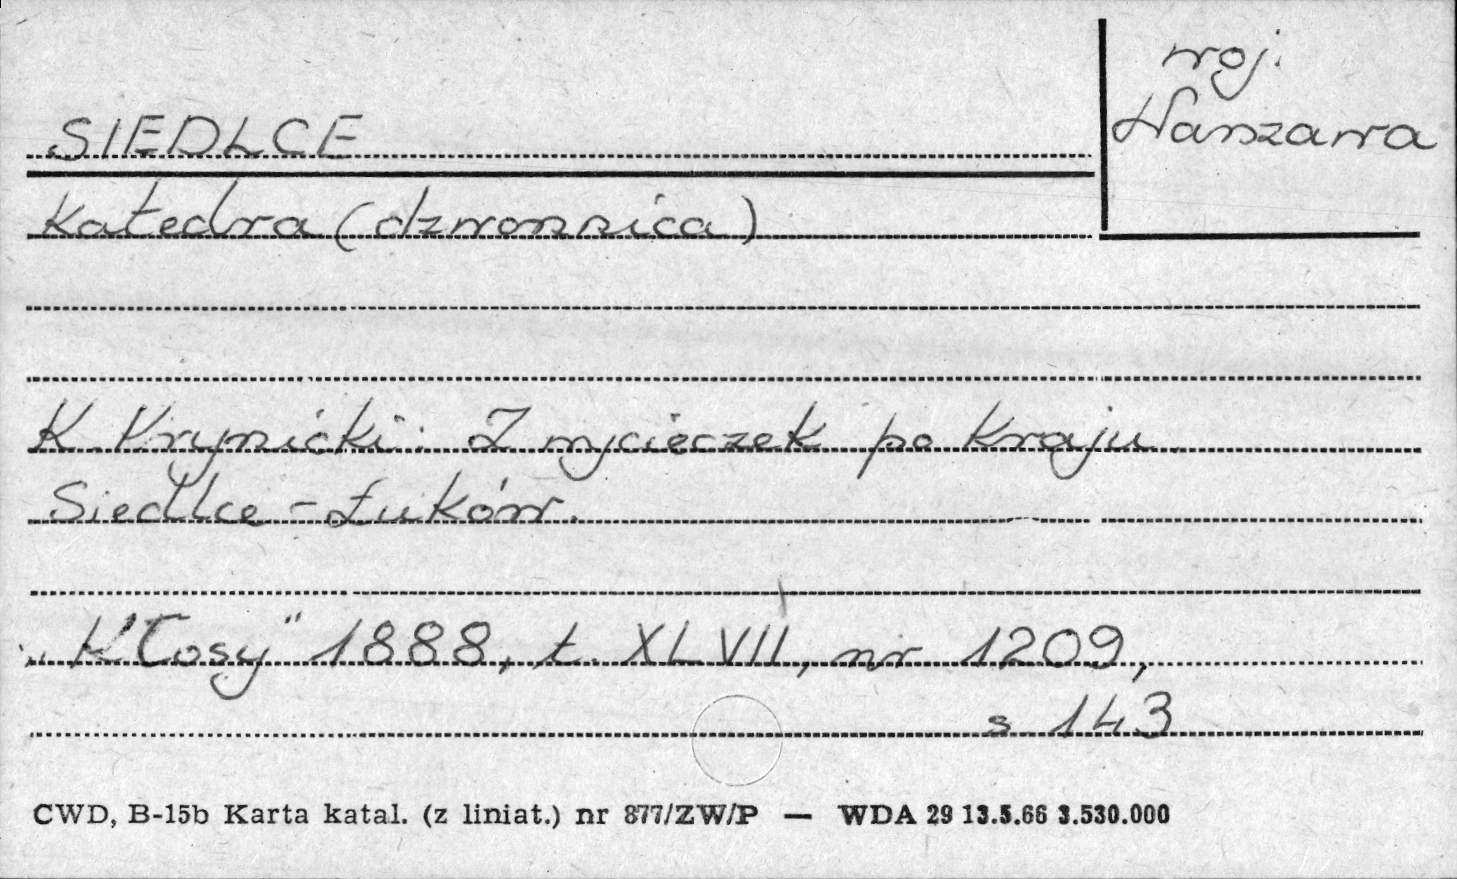 woj.
Warszawa
SIEDLCE
Katedra (dzwonnica)
K. Krynicki: Z wycieczek po Kraju
Siedlce - Łuków.
„Kłosy" 1888, t. XLVII, nr 1209,
s 143
CWD, B-15b Karta katal. (z liniat.) nr 877/ZW/P — WDA 29 13.5.66 3.530.000